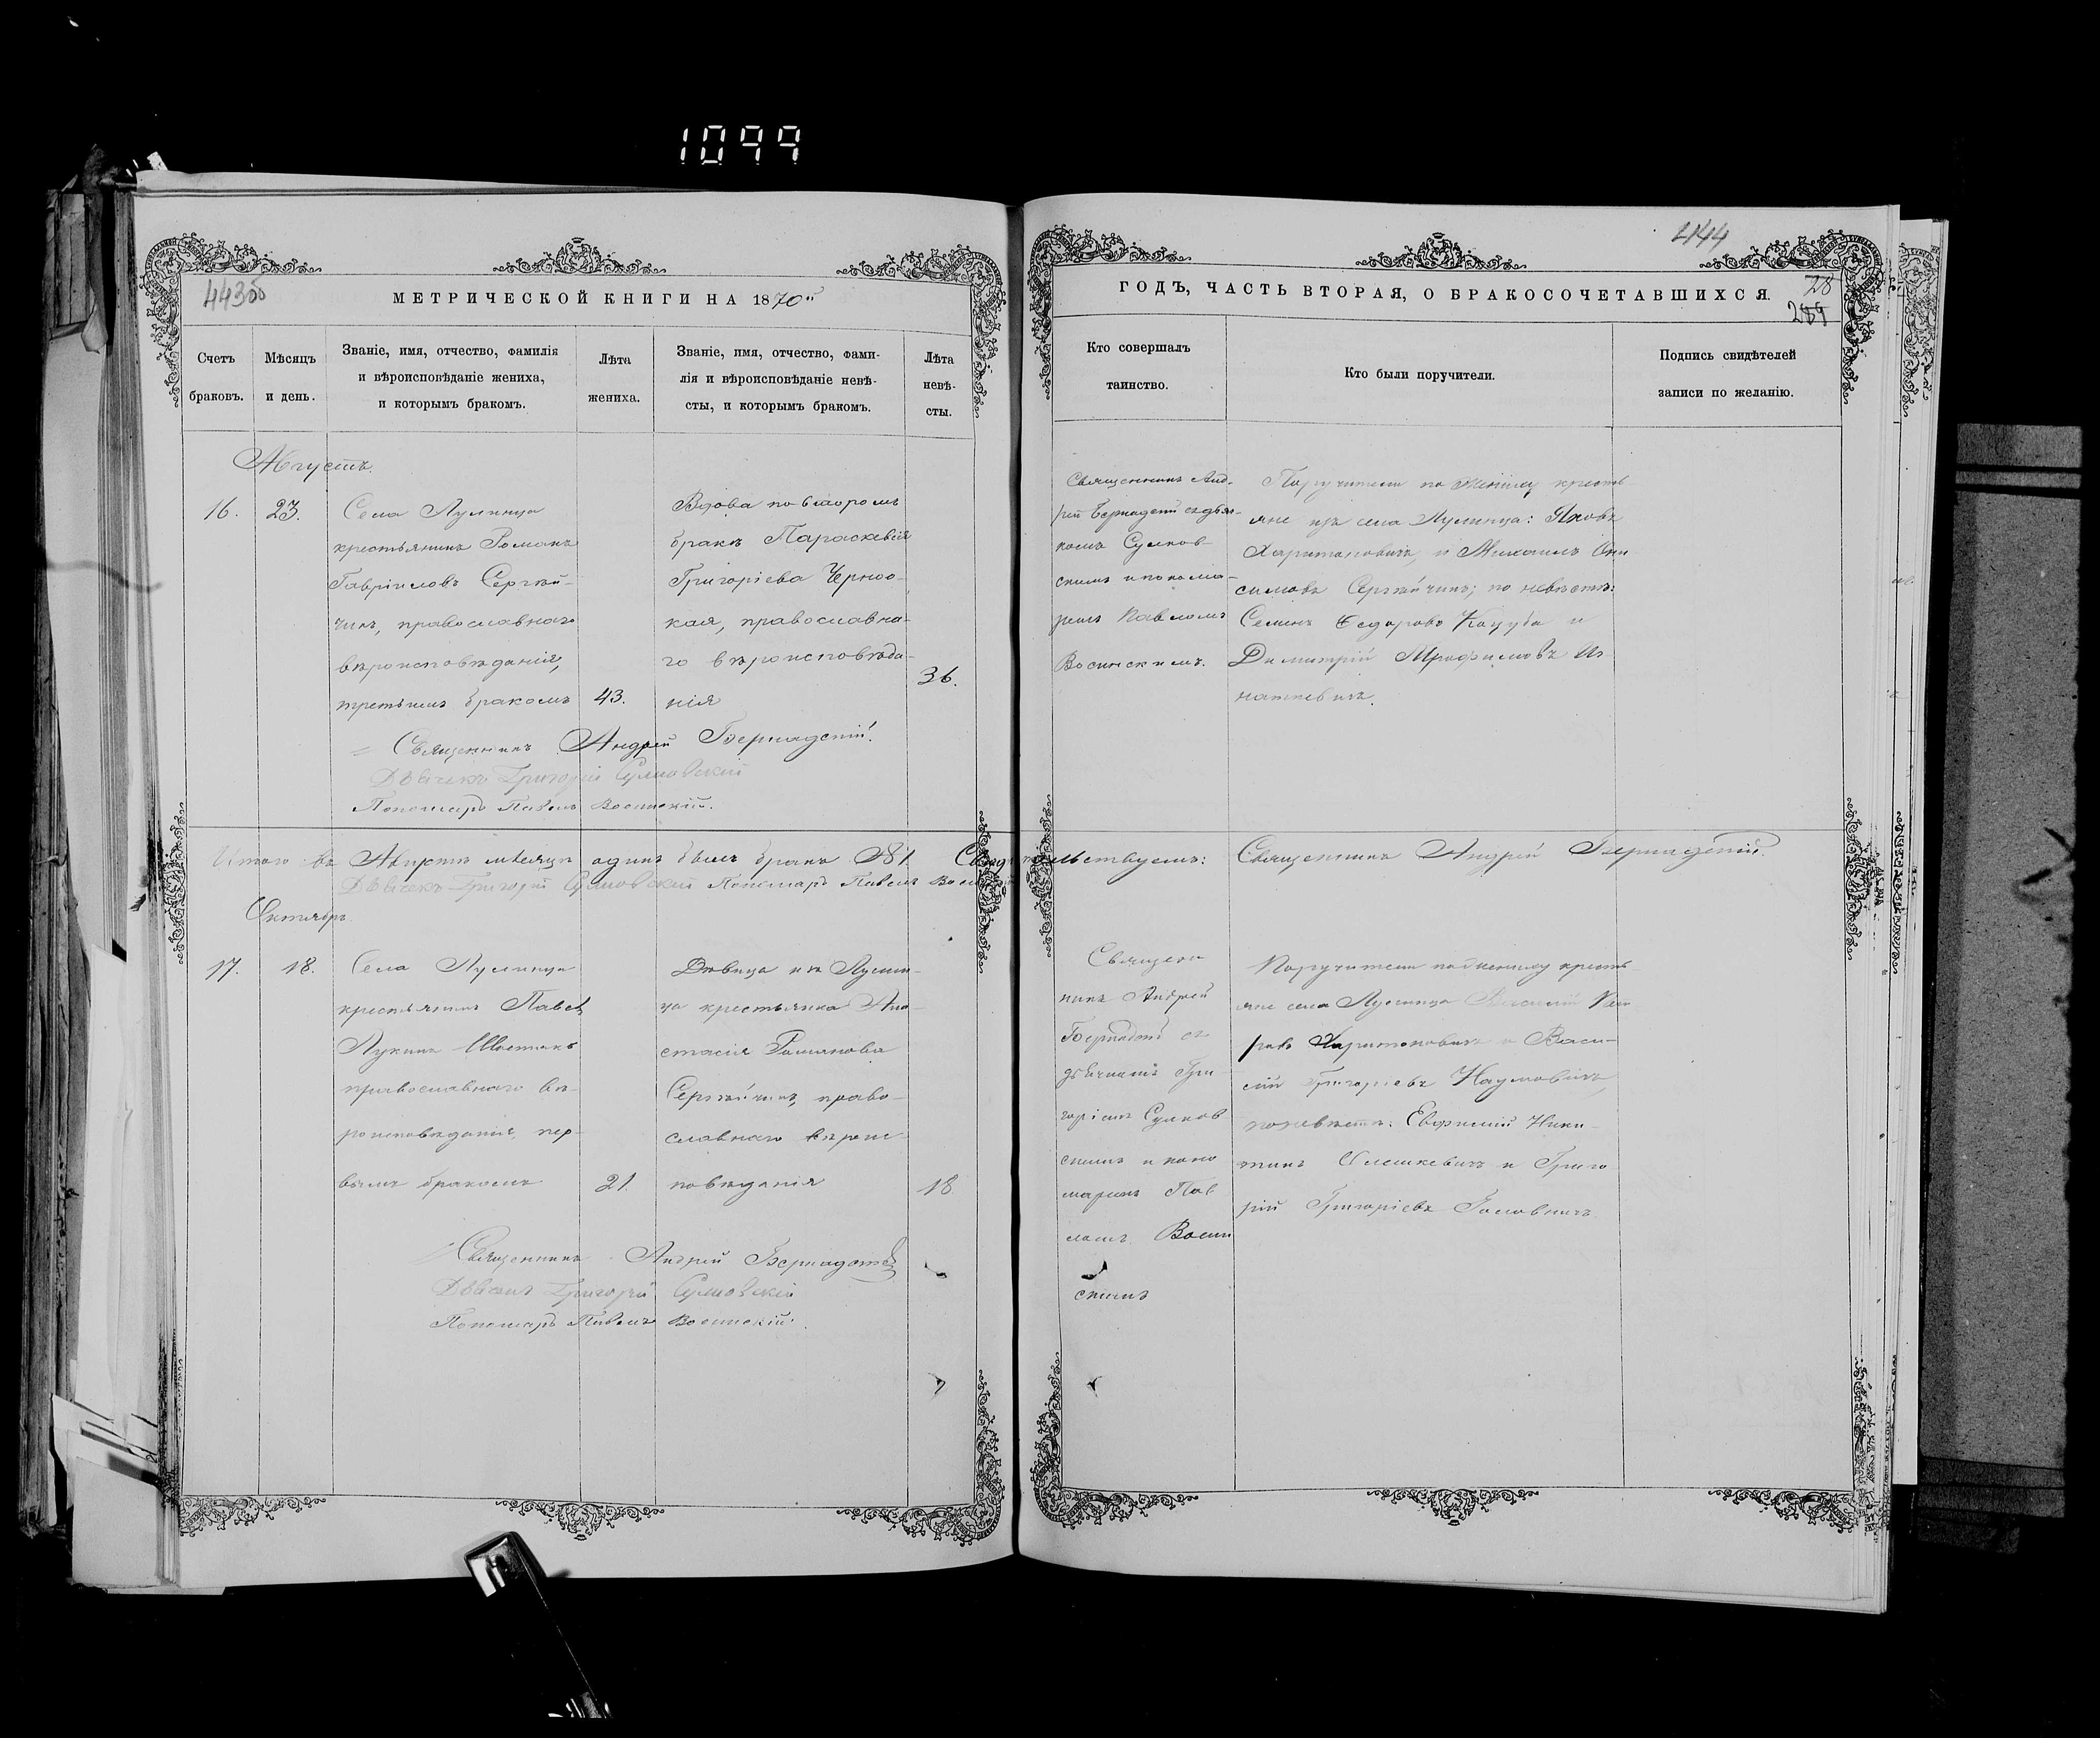 1099
443об
МЕТРИЧЕСКОЙ КНИГИ НА 1870й
Счетъ браковъ.
Мѣсяцъ и день.
Званіе, имя, отчество, фамилія
и вѣроисповѣданіе жениха,
и которымъ бракомъ.
Лѣта
жениха.
Званіе, имя, отчество, фами-
лія и вѣроисповѣданіе невѣ-
сты, и которымъ бракомъ.
Лѣта
невѣ-
сты.
Августъ.
16.
23.
Села Лулинца
крестьянинъ Романъ
Гавріиловъ Сергѣй-
чикъ, православнаго
вѣроисповѣданія,
третьимъ бракомъ
43.
Вдова по второмъ
бракѣ Параскевія
Григоріева Черноо-
кая, православна-
го вѣроисповѣда-
нія
36.
Священникъ Андрей
Дьячекъ Григорій
Пономарь Павелъ Восинскій.
Итого въ Августѣ мѣсяцѣ одинъ былъ бракъ №1. Свидѣтельствуемъ: Священникъ Андрей
Дьячекъ Григорій Пономарь Павелъ
Октябрь
17.
18.
Села Лулинца
крестьянинъ Павелъ
Лукинъ Шостакъ
православнаго вѣ-
роисповѣданія, пер-
вымъ бракомъ
21.
Дѣвица изъ Лулин-
ца крестьянка Ана-
стасія Романова
Сергѣйчикъ, право-
славнаго вѣроис-
повѣданія
18.
Священникъ Андрей
Дьячекъ Григорій
Пономарь Павелъ Восинскій.
444
ГОДЪ, ЧАСТЬ ВТОРАЯ, О БРАКОСОЧЕТАВШИХСЯ.
28
Кто совершалъ
таинство.
Кто были поручители.
Подпись свидѣтелей
записи по желанію.
Священникъ Анд-
рей съ дьяч-
комъ
скимъ и понома-
ремъ Павломъ
Восинскимъ.
Поручители по женихѣ крестья-
яне изъ села Лулинца: Яковъ
Харитоновичъ, и Михаилъ Они
симовъ Сергѣйчикъ; по невѣстѣ:
Семенъ Ѳедоровъ Коцуба и
Димитрій Трофимовъ Иг
наткевичъ.
Священ
никъ Андрей
съ
дьячкомъ Гри-
горіемъ
скимъ и поно
маремъ Пав
ломъ Восин
скимъ
Поручители по женихѣ крестья
яне села Лулинца
Харитоновичъ и Васи-
лій Григорьевъ Наумовичъ,
по невѣстѣ: Евфимій Ники-
тинъ Олешкевичъ и Григо
рій Григоріевъ Головничъ.